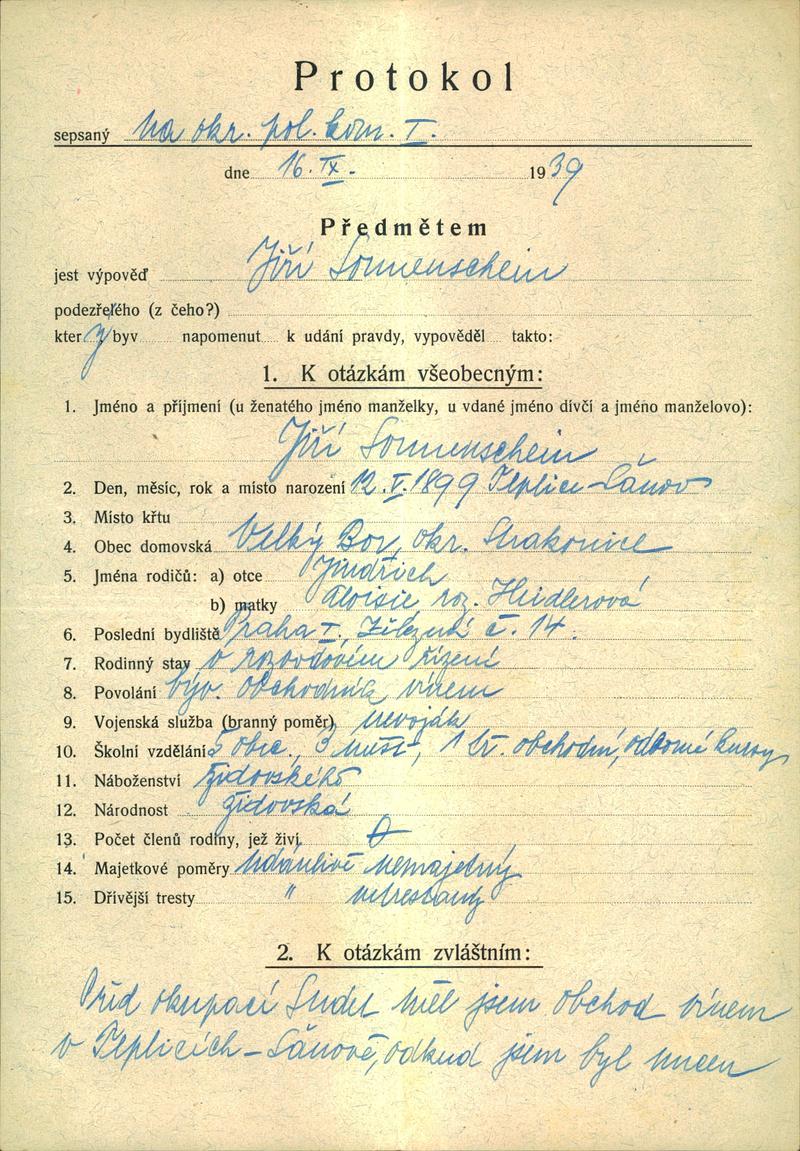 Protokol
sepsaný na okr. pol. kom. I.
dne 16. IX. 1939
Předmětem
jest výpověď Jiří Sonnenschein
podezřelého (z čeho?)
který byv napomenut k udání pravdy, vypověděl takto:
1. K otázkám všeobecným:
1. Jméno a příjmení (u ženatého jméno manželky, u vdané jméno dívčí a jméno manželovo):
Jiří Sonnenschein
2. Den, měsíc, rok a místo narození 12. V. 1899 Teplice-Šanov
3. Místo křtu
4. Obec domovská Velký Bor, okr. Strakonice
5. Jména rodičů: a) otce Jindřich
b) matky Aloisie roz. Heidlerová
6. Poslední bydliště Praha I., Železná č. 14.
7. Rodinný stav v rozvodovém řízení
8. Povolání býv. obchodník vínem
9. Vojenská služba (branný poměr) nevoják
10. Školní vzdělání 5 obec., 3 měšť., 1 tř. obchodní, odborné kursy
11. Náboženství židovského
12. Národnost židovská
13. Počet členů rodiny, jež živí 0
14. Majetkové poměry údánlivě nemajetný
15. Dřívější tresty " netrestaný
2. K otázkám zvláštním:
Před okupací Sudet měl jsem obchod vínem
v Teplicích-Šanově, odkud jsem byl nucen